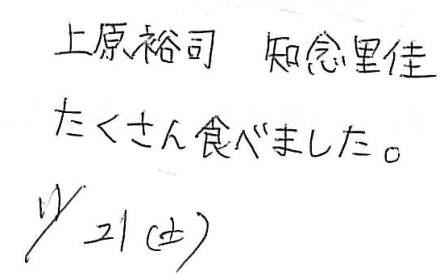 上原裕司 知念里佳
たくさん食べました。
11/21(土)